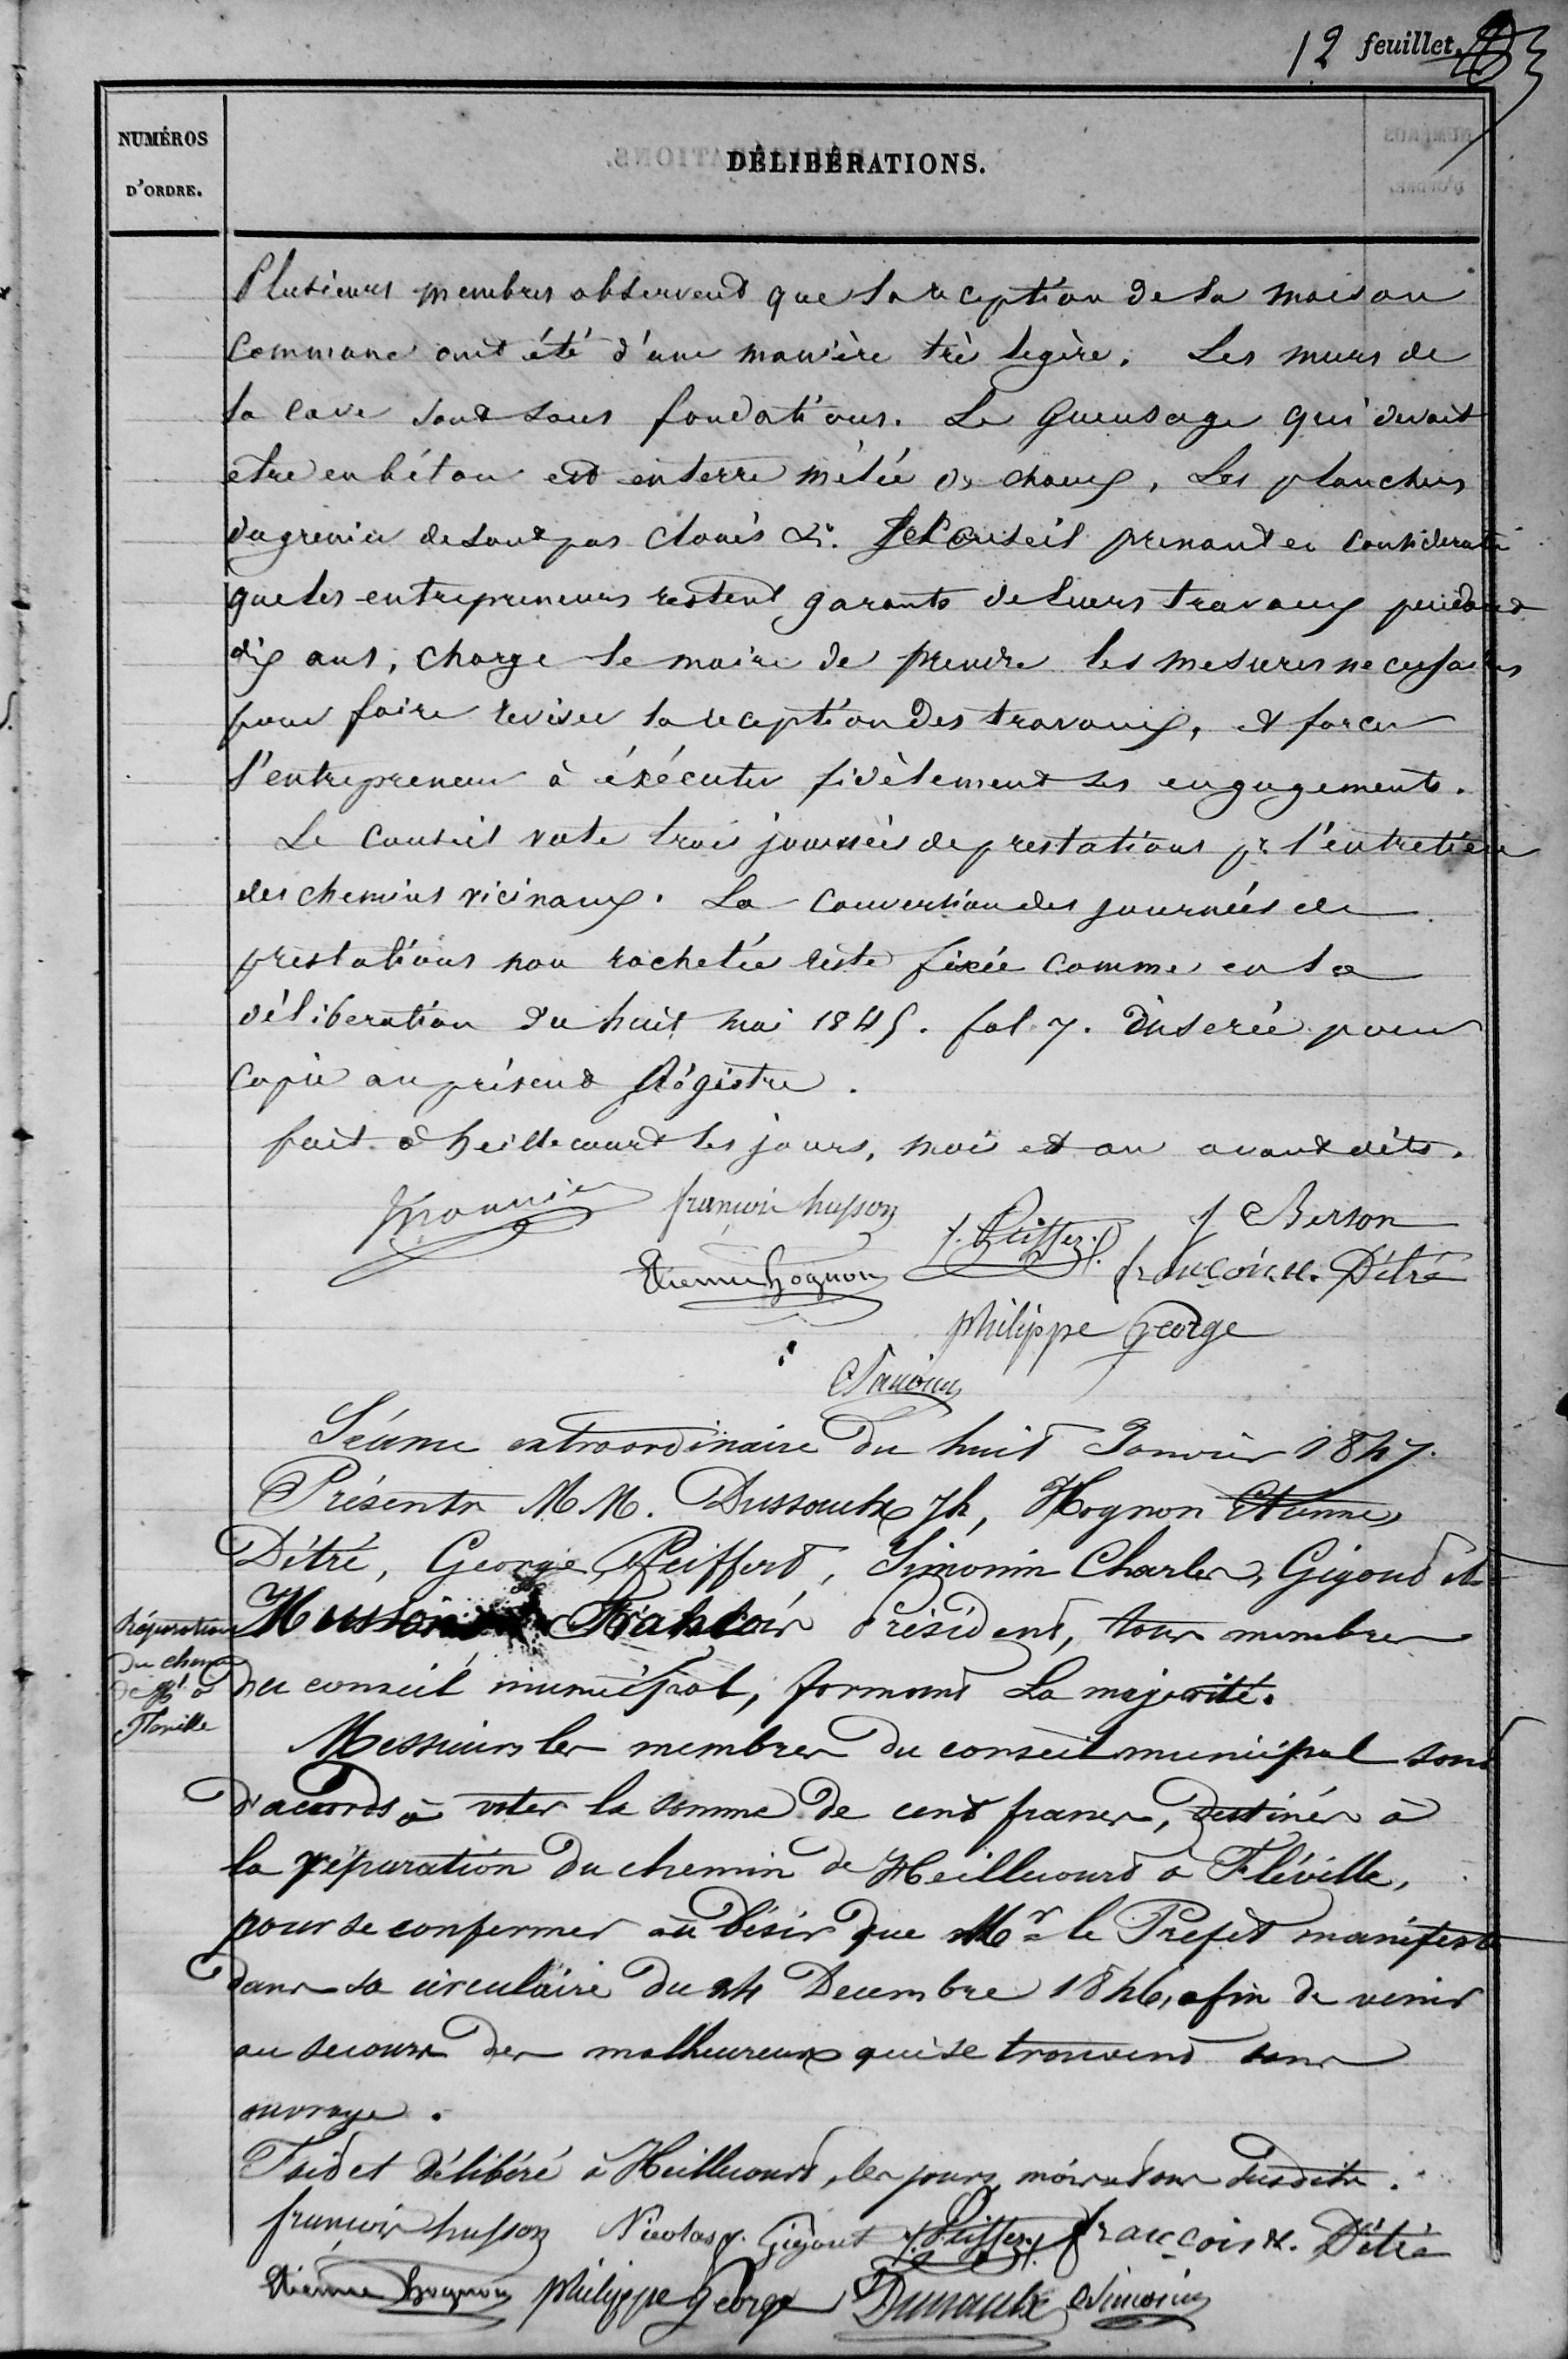 12 feuillet.
NUMÉROS
D'ORDRE.
DÉLIBÉRATIONS.
Plusieurs membres observent que la reception de la maison
Commune ont été d'une manière très legère. Les murs de
la cave sont sans fondations. Le Gueusage qui devait
etre en béton est en terre mêlée de chaux, Les planchers
du grenier ne sont pas cloués &c. Le Conseil prenant en considerati
que les entrepreneurs restent garants de leurs travaux pendant
dix ans, charge le maire de prendre les mesures necessaires
pour faire reviser la reception des travaux, et forcer
l'entrepreneur à éxécuter fidèlement ses engagements.
Le Conseil vote trois journées de prestations pr l'entretien
des chemins vicinaux. La Conversion des journées de
prestations non rachetée reste fixée comme en la
déliberation du huit mai 1845. fol. 7. inserée pour
Copie au présent Régistre.
fait à heillecourt les jours, mois et an avant dits.
françois husson J. Peiffer J Berson
Etienne hognon françois x. Détré
philippe George
CSimonin
Séance extraordinaire du huit Janvier 1847.
Présents MM. Dussaulx Jh, Hognon Etienne,
Détré, George, Peiffert, Simonin Charles, Gigout et
Husson François Président, tous membres
du conseil municipal, formant la majorité.
Réparation
du chemin
de Ht à
Fléville
Messieurs les membres du conseil municipal sont
d'accords à voter la somme de cent francs, destinés à
la réparation du chemin de Heillecourt à Fléville,
pour se conformer au désir que Mr le Prefet manifeste
dans sa circulaire du 24 Decembre 1846, afin de venir
au secours des malheureux qui se trouvent sans
ouvrage.
Fait et délibéré à Heillecourt, les jours, mois et an susdits.
françois husson Nicolas J. Gigout J. Peiffer françois x. Détré
Etienne hognon philippe George Dussaulx CSimonin